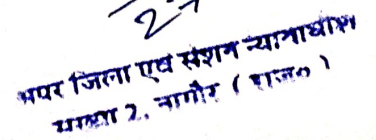 2
अपर जिला एवं सेशन न्यायाधीश
संख्या 2, नागौर ( राज० )